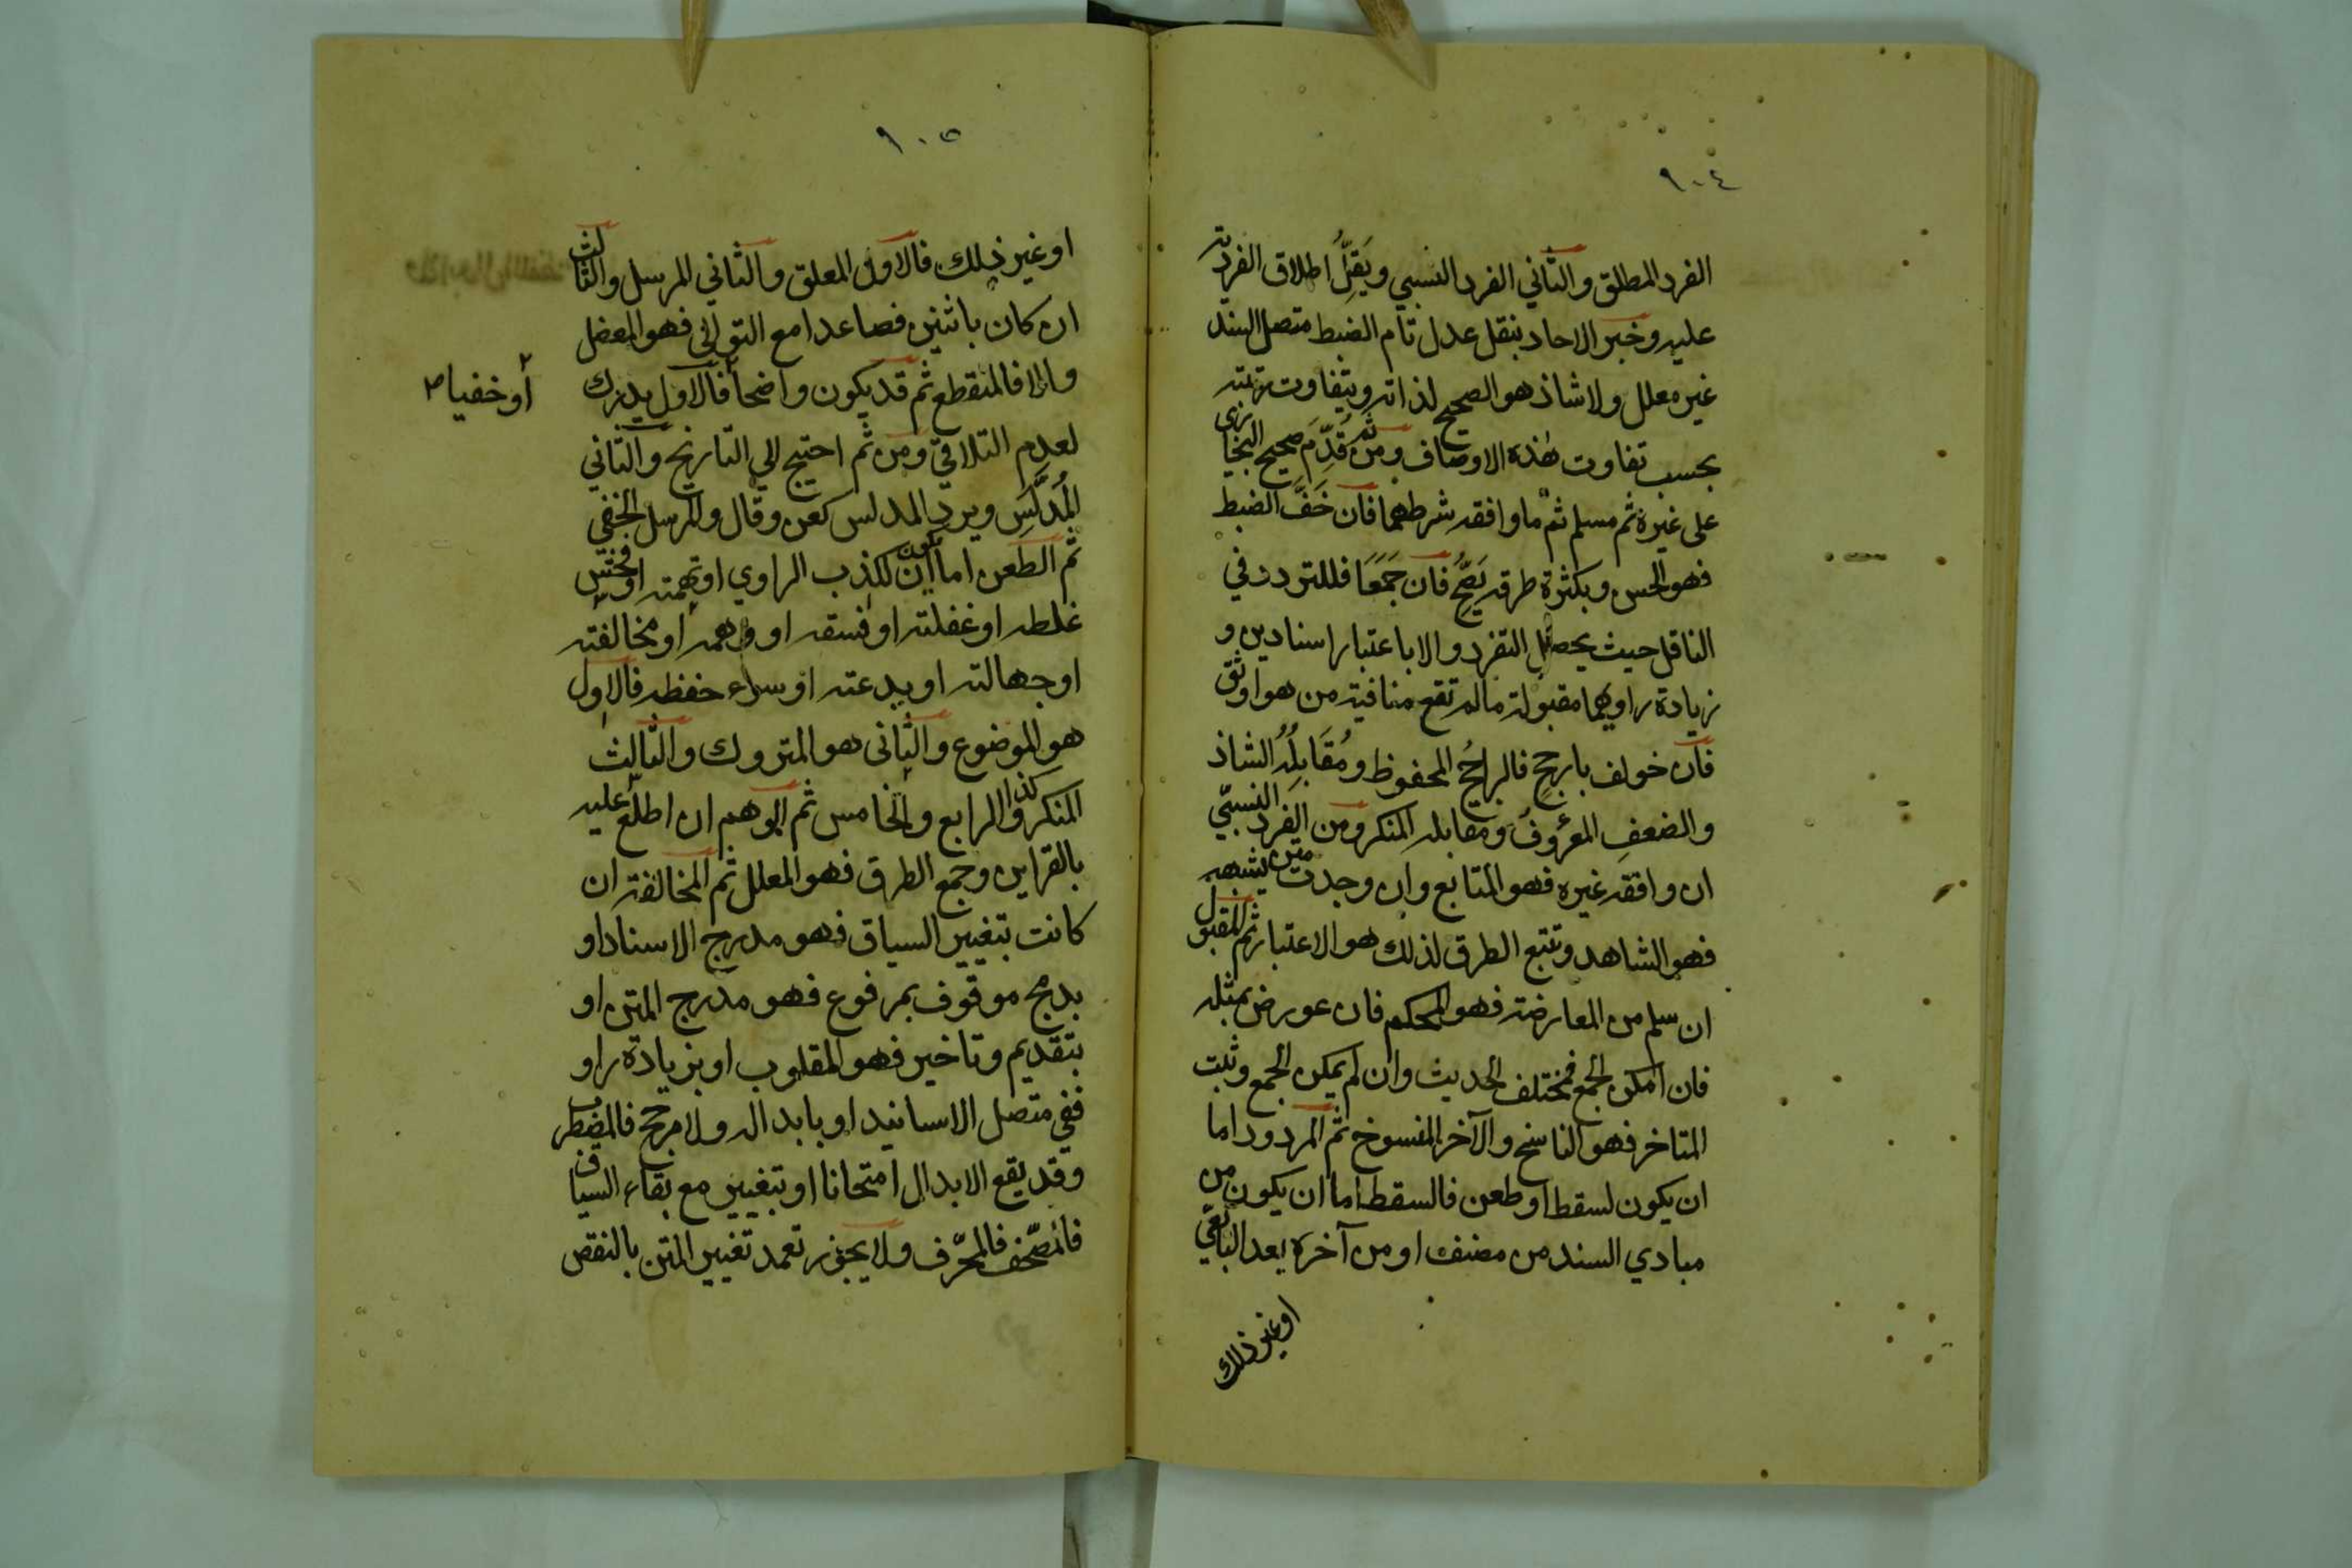 ٩٠٤
الفرد المطلق والثاني الفرد النسبي ويَقِلُّ اطلاق الفردية
عليه وخبر الاحاد بنقل عدل تام الضبط متصل السند
غير معلل ولا شاذ هو الصحيح لذاته ويتفاوت رتبته
بحسب تفاوت هذه الاوصاف ومن ثم قُدِّمَ صحيح البخاري
على غيره ثم مسلم ثم ما وافقه شرطهما فان خَفَّ الضبط
فهو الحسن وبكثرة طرقه يَصِحُّ فان جَمَعَا فللتردد في
الناقل حيث يحصل التفرد والا باعتبار اسنادين و
زيادة راويهما مقبولة مالم تقع منافية من هو اوثق
فان خولف بارجح فالراجحُ المحفوظ ومُقَابِلُهُ الشاذ
والضعفِ المعروفُ ومقابله المنكر ومن الفرد النسبّي
ان وافقه غيره فهو المتابع وان وجدت متن يشبهه
فهو الشاهد وتتبع الطرق لذلك هو الاعتبار ثم المقبول
ان سلم من المعارضة فهو المحكم فان عورض بمثله
فان امكن الجمع فمختلف الحديث وان لم يمكن الجمع وثبت
المتاخر فهو الناسخ والآخر المنسوخ ثم المردود اما
ان يكون لسقط او طعن فالسقط اما ان يكون من
مبادي السند من مصنف او من آخره بعد التابعي
او غير ذلك
٩٠٥
او غير ذلك فالاول المعلق والثاني المرسل والثالث
ان كان باثنين فصاعدا مع التوالي فهو المعضل
والا فالمنقطع ثم قد يكون واضحا فالاول يدرك
أو خفيا
لعدم التلاقي ومن ثم احتيج الي التاريخ والثاني
المُدَلَّسِ ويرد المدلس كعن وقال والمرسل الخفي
ثم الطعن اما ان يكون لكذب الراوي او تهمته او فحش
غلطه او غفلته او فسقه او وهمه او مخالفته
او جهالته او بدعته او سواء حفظه فالاول
هو الموضوع والثاني هو المتروك والثالث
المنكر وكذا الرابع والخامس ثم الوهم ان اطلع عليه
بالقراين وجمع الطرق فهو المعلل ثم المخالفة ان
كانت بتغيير السياق فهو مدرج الاسناد او
بدمج موقوف بمرفوع فهو مدرج المتن او
بتقديم وتاخير فهو المقلوب او بزيادة راو
ففي متصل الاسانيد او بابداله ولا مرجح فالمضطرب
وقد يقع الابدال امتحانا او بتغيير مع بقاء السياق
فالمصّحف فالمحّرف ولا يجوز تعمد تغيير المتن بالنقص